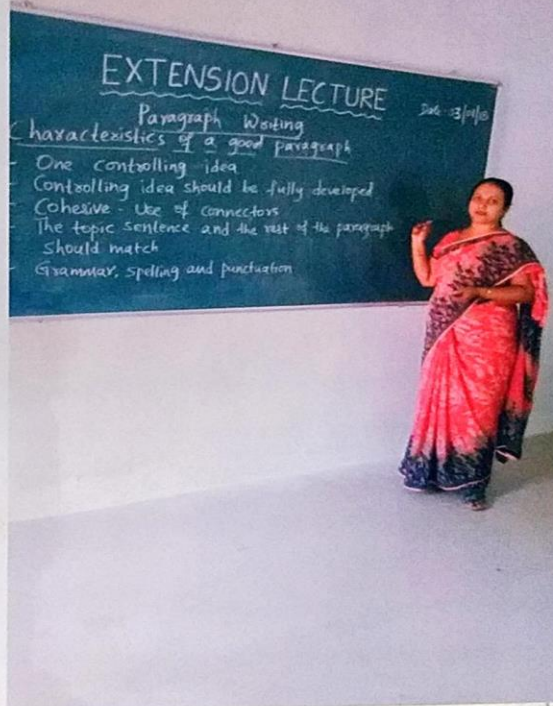 EXTENSION LECTURE
Paragraph Writing
Characteristics of a good paragraph
- One controlling idea
- Controlling idea should be fully developed
- Cohesive - Use of connectors
The topic sentence and the rest of the paragraph
should match
- Grammar, spelling and punctuation
Date :-